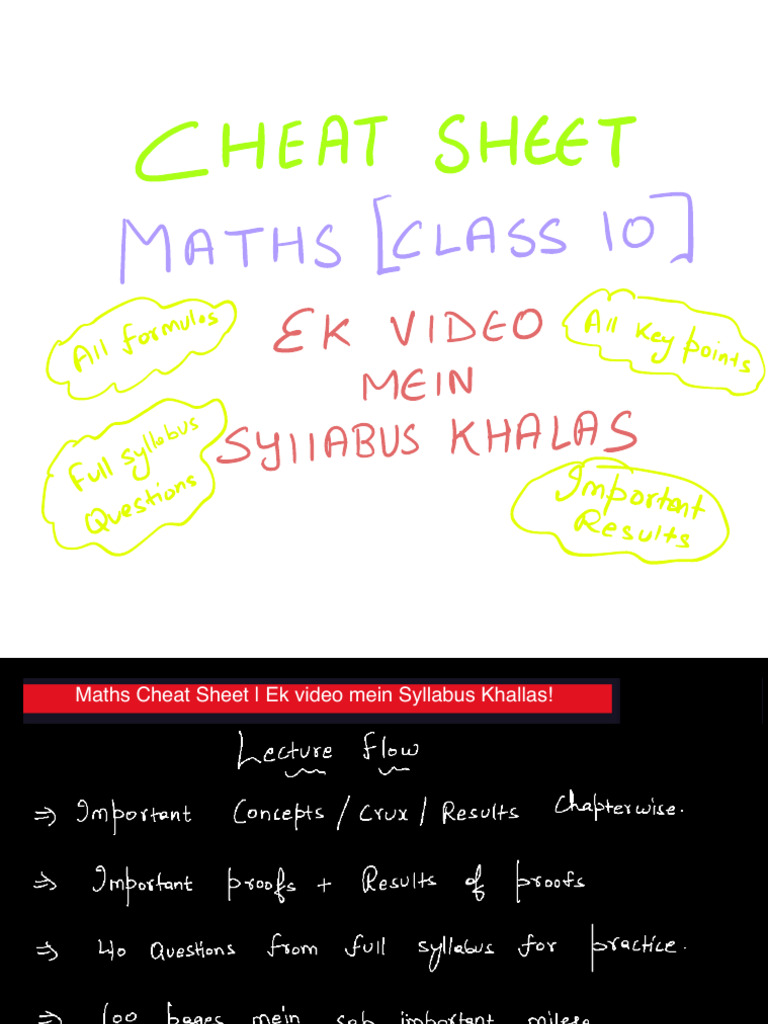 CHEAT SHEET
MATHS [CLASS 10]
All formulas
EK VIDEO
All Key points
MEIN
Full syllabus
Questions
SYllABUS KHALAS
Important
Results
Maths Cheat Sheet | Ek video mein Syllabus Khallas!
Lecture flow
⇒ Important Concepts / Crux / Results Chapterwise.
⇒ Important proofs + Results of proofs
⇒ 40 Questions from full syllabus for practice.
⇒ 100 pages mein sab important milega